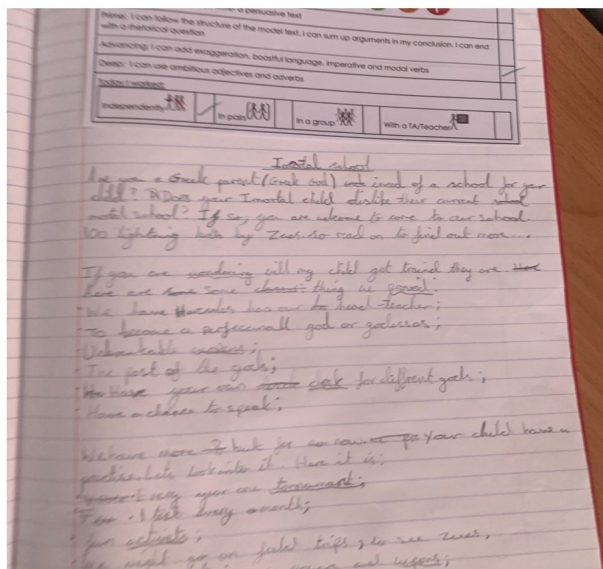 a persuasive text
Prime: I can follow the structure of the model text. I can sum up arguments in my conclusion. I can end
with a rhetorical question
Advancing: I can add exaggeration, boastful language, imperative and modal verbs
Deep: I can use ambitious adjectives and adverbs
Today I worked:
Independently In pairs In a group With a TA/Teacher
Imortal school
Are you a Greek parent (Greek God) in need of a school for your
child? Does your Imortal child dislike their current school
school? If so, you are welcome to come to our school.
100 lightning bolts by Zeus. so read on to find out more...
If you are wondering will my child get traind they are
here are some thing we
We have Hercules has our head-teacher;
To become a god or godesses;
The past of the gods;
Have your own for different gods;
Have a chance to speak;
We have more but for your child have a
Lets look into it. Here it is;
Every year one tornament;
1 test every month;
fun
might go on field trips to see Zeus,
and